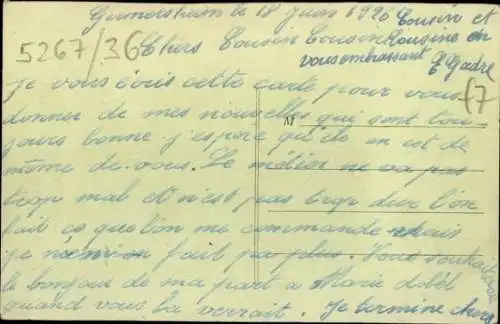 Germersheim le 18 Juin 1926
5267/36
Chers Cousin Cousine
je vous écris cette carte pour vous
donner de mes nouvelles qui sont tou
jours bonne j'espère qu'ils en est de
même de vous. Le métier ne va pas
trop mal et n'est pas trop dur l'on
fait ce que l'on me commande mais
je n'en fait pas plus. Vous souhaiterai
le bonjour de ma part a Marie
quand vous la verrait. Je termine chers
Cousin et
Cousine en
vous embrassant
(7